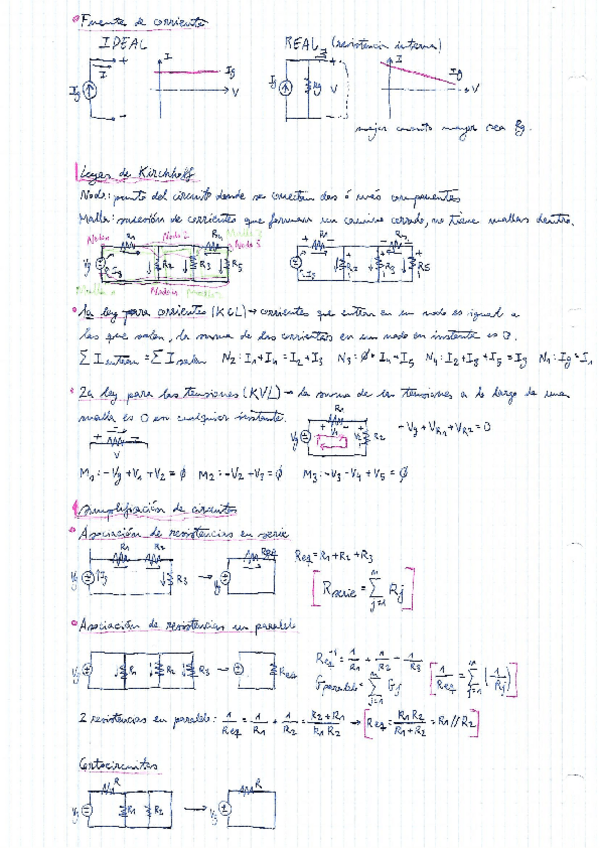 Fuentes de corriente
IDEAL
REAL (resistencia interna)
I
I
+
-
Ig
Ig
V
Ig
Rg
V
+
-
I
Ig
V
mejor cuanto mayor sea Rg.
Leyes de Kirchhoff
Nodo: punto del circuito donde se conectan dos ó más componentes
Malla: sucesión de corrientes que forman un camino cerrado, no tiene mallas dentro.
Nodo1 R1 Nodo 2 R4 Malla 3
Nodo 3
Vg R2 R3 R5
Nodo4
R1 R4
R2 R3 R5
1a ley para corrientes (KCL) → corrientes que entran en un nodo es igual a
las que salen, la suma de las corrientes en un nodo en instante es 0.
Σ I entran = Σ I salen N2: I1+I4 = I2+I3 N3: ø = I4+I5 N4: I2+I3+I5 = Ig N1: Ig = I1
2a ley para las tensiones (KVL) → la suma de las tensiones a lo largo de una
malla es 0 en cualquier instante.
+ -
V
R1
+ -
Vg R2
-Vg + VR1 + VR2 = 0
M1: -Vg + V1 + V2 = ø M2: -V2 + V3 = ø M3: -V3 - V4 + V5 = ø
Simplificación de circuitos
Asociación de resistencias en serie
R1 R2
Vg R3 → Vg Req
Req = R1 + R2 + R3
[Rserie = Σ Rj]
n
j=1
Asociación de resistencias en paralelo
Vg R1 R2 R3 → Req
Req⁻¹ = 1/R1 + 1/R2 - 1/R3
Gparalelo = Σ Gj
n
j=1
[1/Req = Σ (1/Rj)]
n
j=1
2 resistencias en paralelo: 1/Req = 1/R1 + 1/R2 = R2+R1/R1R2 → [Req = R1R2/R1+R2 = R1//R2]
Cortocircuitos
R
Vg R1 R2 → Vg R